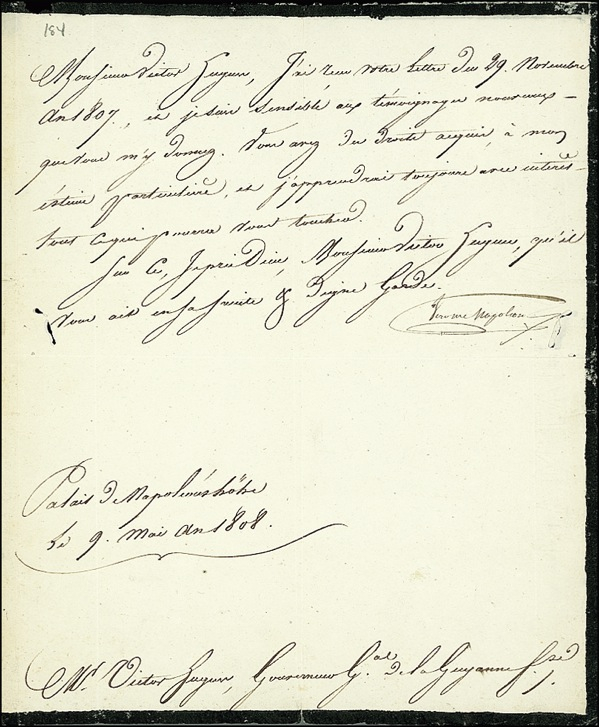 184
Monsieur Victor Hugues, J'ai reçu votre lettre du 29. Novembre
An 1807., et je suis sensible aux témoignages nouveaux
que vous m'y donnez. Vous avez des droits acquis, à mon
estime particulière, et j'apprendrai toujours avec intérêt
tout ce qui pourra vous toucher.
Sur ce, Je prie Dieu, Monsieur Victor Hugues, qu'il
vous ait en sa sainte & digne Garde.
Jérôme Napoléon
Palais de Napoléonshöhe
le 9. Mai An 1808.
Mr. Victor Hugues, Gouverneur Gal. de la Guyanne fse.